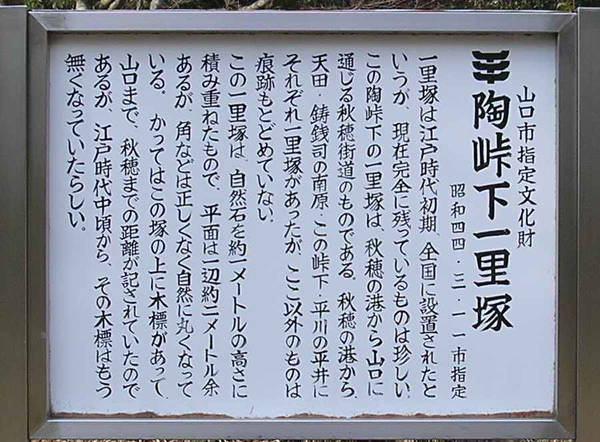 山口市指定文化財
陶峠下一里塚
昭和四四・三・一一市指定
一里塚は江戸時代初期、全国に設置されたと
いうが、現在完全に残っているものは珍しい。
この陶峠下の一里塚は、秋穂の港から山口に
通じる秋穂街道のものである。秋穂の港から、
天田・鋳銭司の南原・この峠下・平川の平井に
それぞれ一里塚があったが、ここ以外のものは
痕跡もとどめていない。
この一里塚は、自然石を約一メートルの高さに
積み重ねたもので、平面は一辺約二メートル余
あるが、角などは正しくなく自然に丸くなって
いる。かつてはこの塚の上に木標があって、
山口まで、秋穂までの距離が記されていたので
あるが、江戸時代中頃から、その木標はもう
無くなっていたらしい。